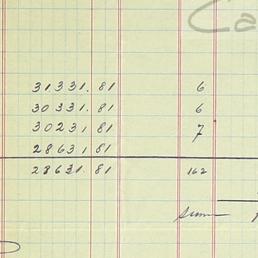 Ca
31331.81 6
30331.81 6
30231.81 7
28631.81
28631.81 162